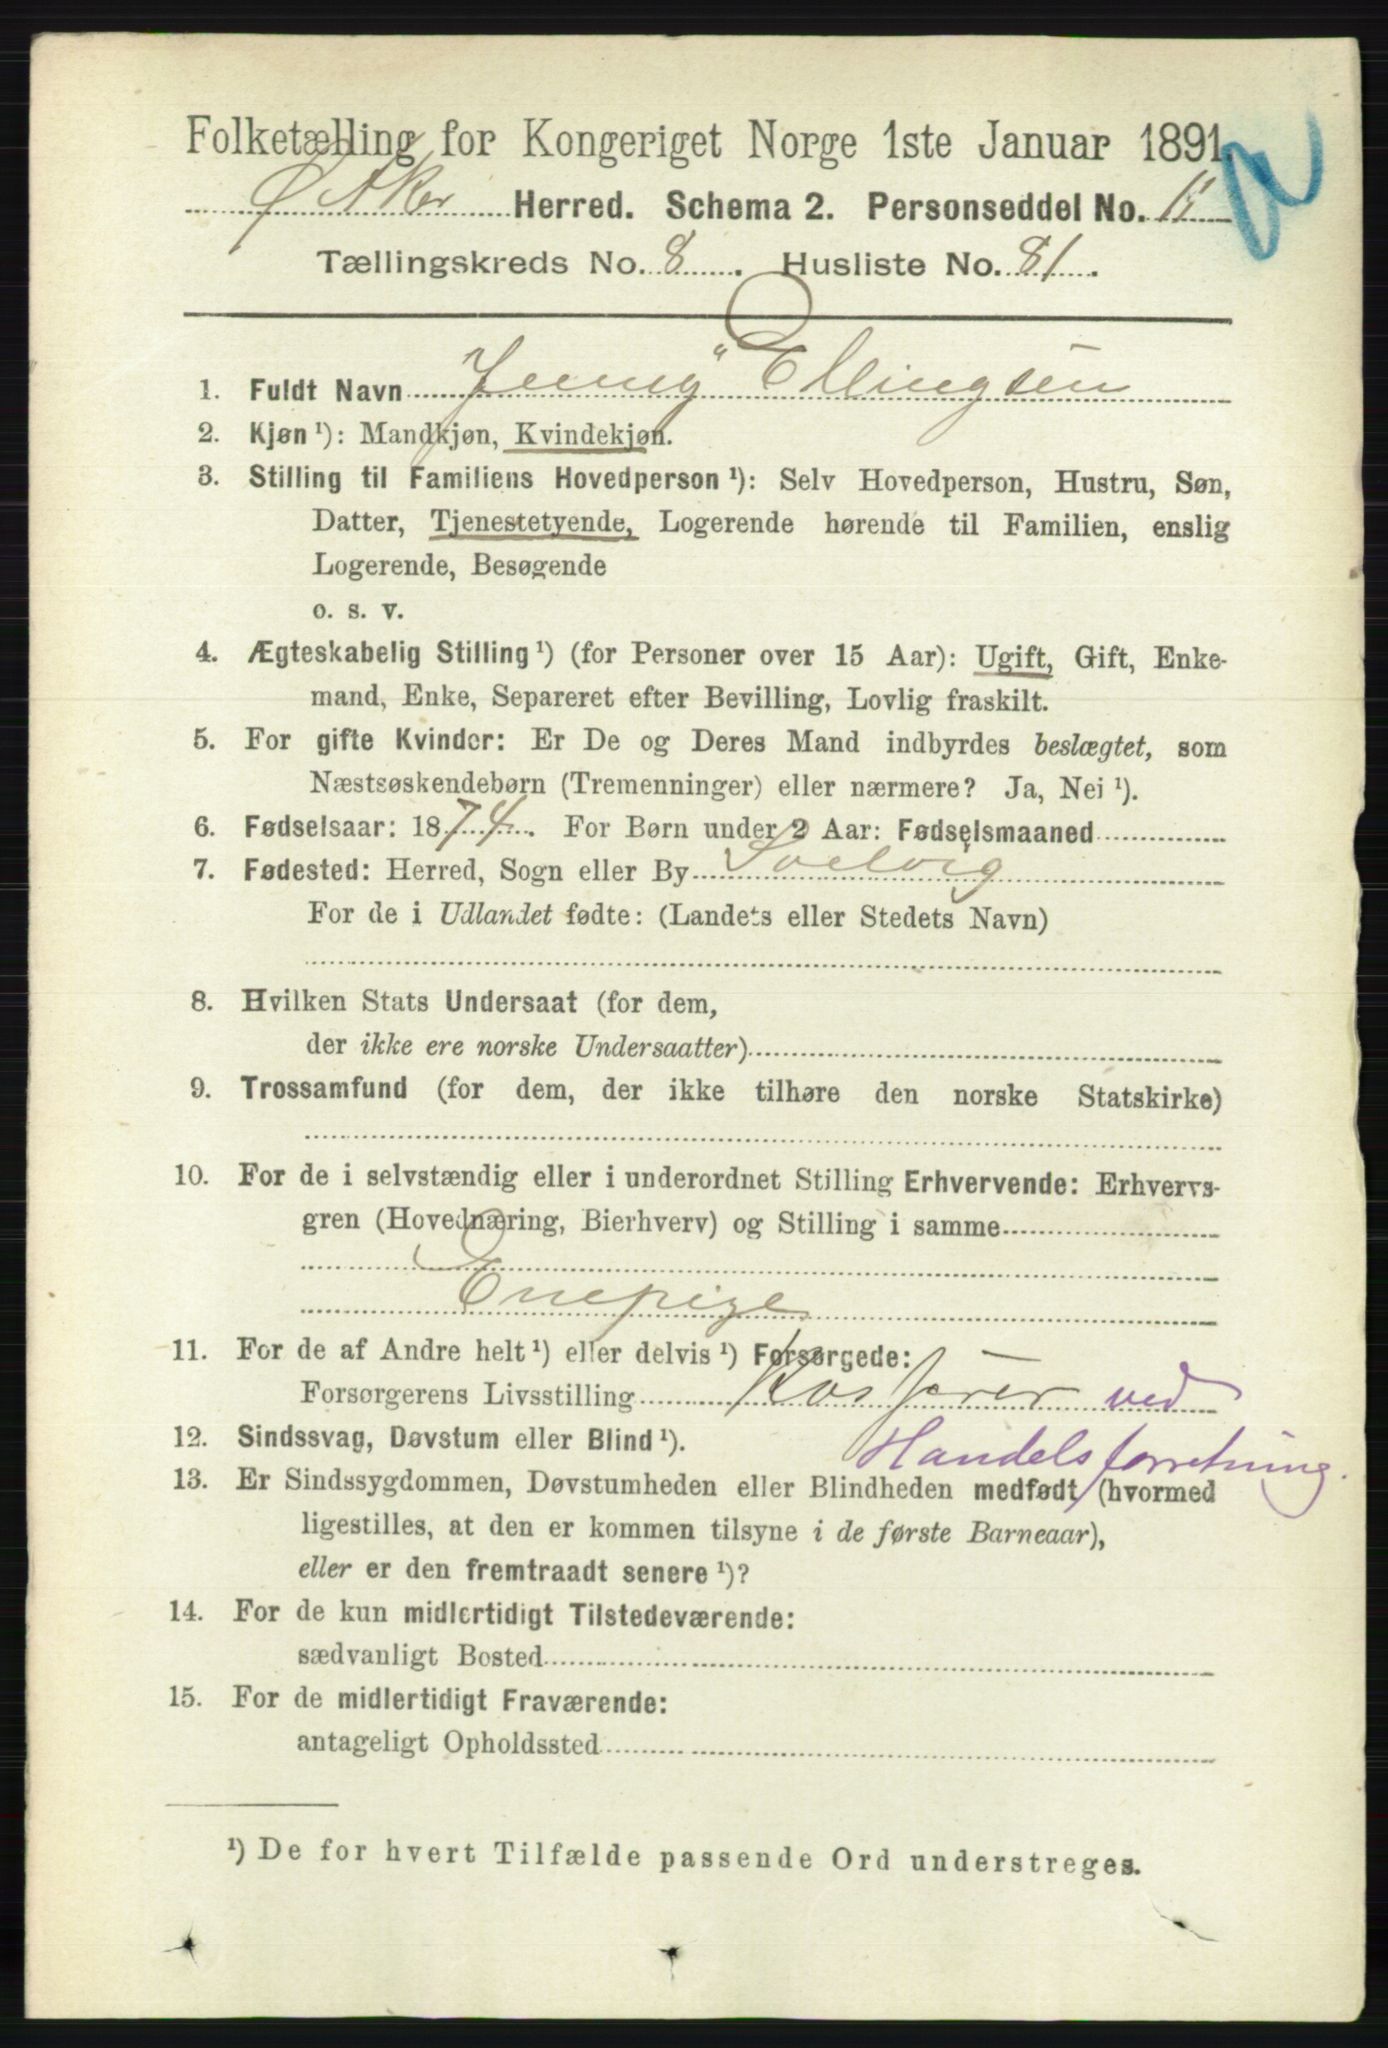 Folketælling for Kongeriget Norge 1ste Januar 1891.
Ø Aker Herred. Schema 2. Personseddel No.
Tællingskreds No. 8. Husliste No. 81.
1. Fuldt Navn Jenny Ellingsen
2. Kjøn ¹): Mandkjøn, Kvindekjøn.
3. Stilling til Familiens Hovedperson ¹): Selv Hovedperson, Hustru, Søn,
Datter, Tjenestetyende, Logerende hørende til Familien, enslig
Logerende, Besøgende
o. s. v.
4. Ægteskabelig Stilling ¹) (for Personer over 15 Aar): Ugift, Gift, Enke-
mand, Enke, Separeret efter Bevilling, Lovlig fraskilt.
5. For gifte Kvinder: Er De og Deres Mand indbyrdes beslægtet, som
Næstsøskendebørn (Tremenninger) eller nærmere? Ja, Nei ¹).
6. Fødselsaar: 1874. For Børn under 2 Aar: Fødselsmaaned
7. Fødested: Herred, Sogn eller By Svelvig
For de i Udlandet fødte: (Landets eller Stedets Navn)
8. Hvilken Stats Undersaat (for dem,
der ikke ere norske Undersaatter)
9. Trossamfund (for dem, der ikke tilhøre den norske Statskirke)
10. For de i selvstændig eller i underordnet Stilling Erhvervende: Erhvervs-
gren (Hovednæring, Bierhverv) og Stilling i samme
Enepige
11. For de af Andre helt ¹) eller delvis ¹) Forsørgede:
Forsørgerens Livsstilling Kasserer ved
Handelsforretning.
12. Sindssvag, Døvstum eller Blind ¹).
13. Er Sindssygdommen, Døvstumheden eller Blindheden medfødt (hvormed
ligestilles, at den er kommen tilsyne i de første Barneaar),
eller er den fremtraadt senere ¹)?
14. For de kun midlertidigt Tilstedeværende:
sædvanligt Bosted
15. For de midlertidigt Fraværende:
antageligt Opholdssted
¹) De for hvert Tilfælde passende Ord understreges.